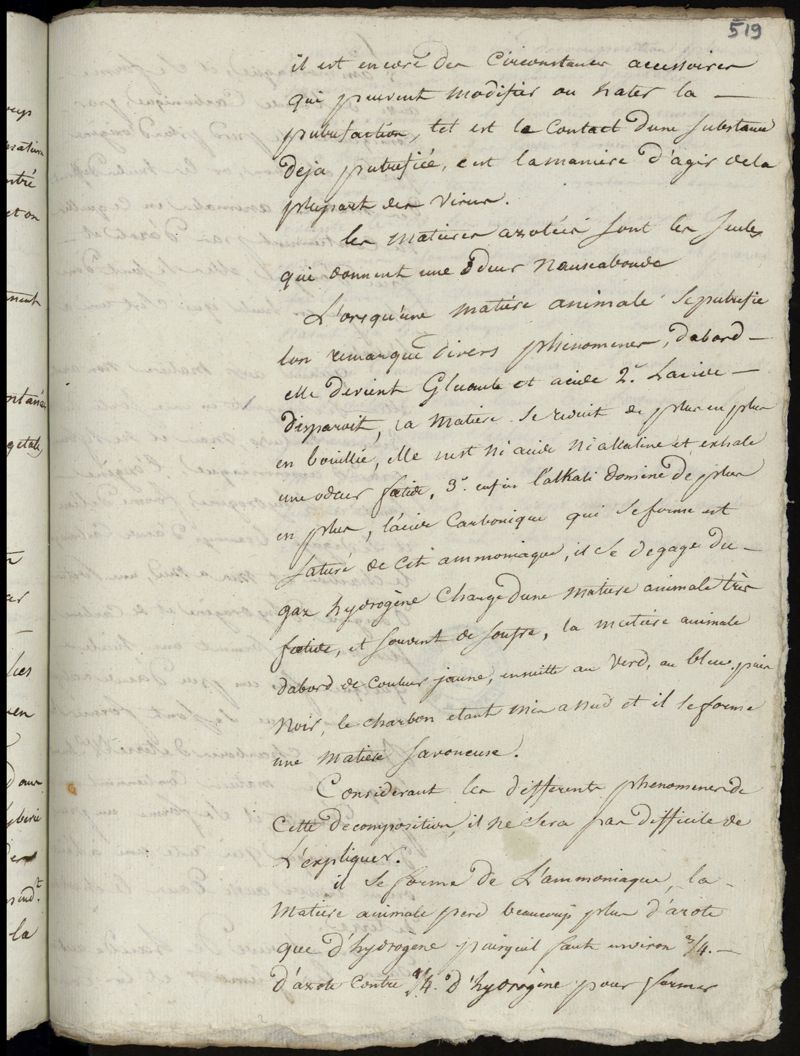 519
il est encore des Circonstances accessoires
qui peuvent modifier ou hater la —
putrefaction, tel est le Contact d'une substance
deja putrefiée, c'est la maniere d'agir de la
plupart des virus.
les matieres azotées sont les seules
qui donnent une odeur nauseabonde
L'orsqu'une matiére animale se putrefie
l'on remarque divers phénomenes, dabord —
elle devient Gluante et acide 2.° L'acide —
disparoit, la matiere se reduit de plus en plus
en bouillie, elle n'est ni acide ni alkaline et exhale
une odeur fœtide, 3.° enfin l'alkali domine de plus
en plus, l'acide Carbonique qui se forme est
saturé de cet ammoniaque, il se degage du —
gaz hydrogène Chargé d'une matiere animale très
fœtide, et souvent de soufre, la matiére animale
dabord de couleur jaune, ensuitte au verd, au bleu, puis
noir, le charbon etant mis a nud et il se forme
une matiere savoneuse.
Considerant les differents phenomenes de
Cette decomposition, il ne sera pas difficile de
L'expliquer.
il se forme de L'ammoniaque, la —
matiere animale perd beaucoup plus d'azote
que d'hydrogène puisquil faut environ 3/4. —
d'azote contre 1/4. d'hydrogène pour former
nent
getale,
la